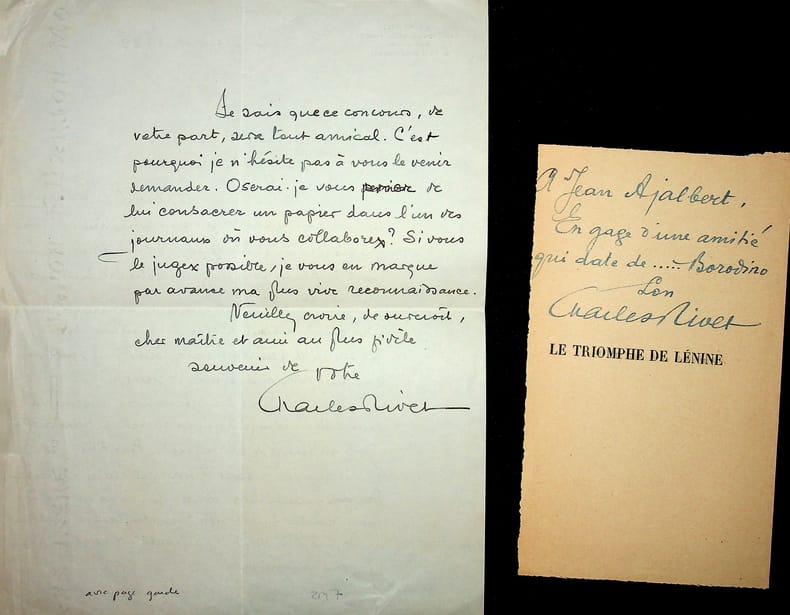 Je sais que ce concours, de
votre part, sera tout amical. C'est
pourquoi je n'hésite pas à vous le venir
demander. Oserai-je vous prier de
lui consacrer un papier dans l'un des
journaux où vous collaborez? Si vous
le jugez possible, je vous en marque
par avance ma plus vive reconnaissance.
Veuillez croire, de surcroit,
cher maître et ami au plus fidèle
souvenir de votre
Charles Rivet
avec page garde
A Jean Ajalbert,
En gage d'une amitié
qui date de ..... Borodino
Son
Charles Rivet
LE TRIOMPHE DE LÉNINE